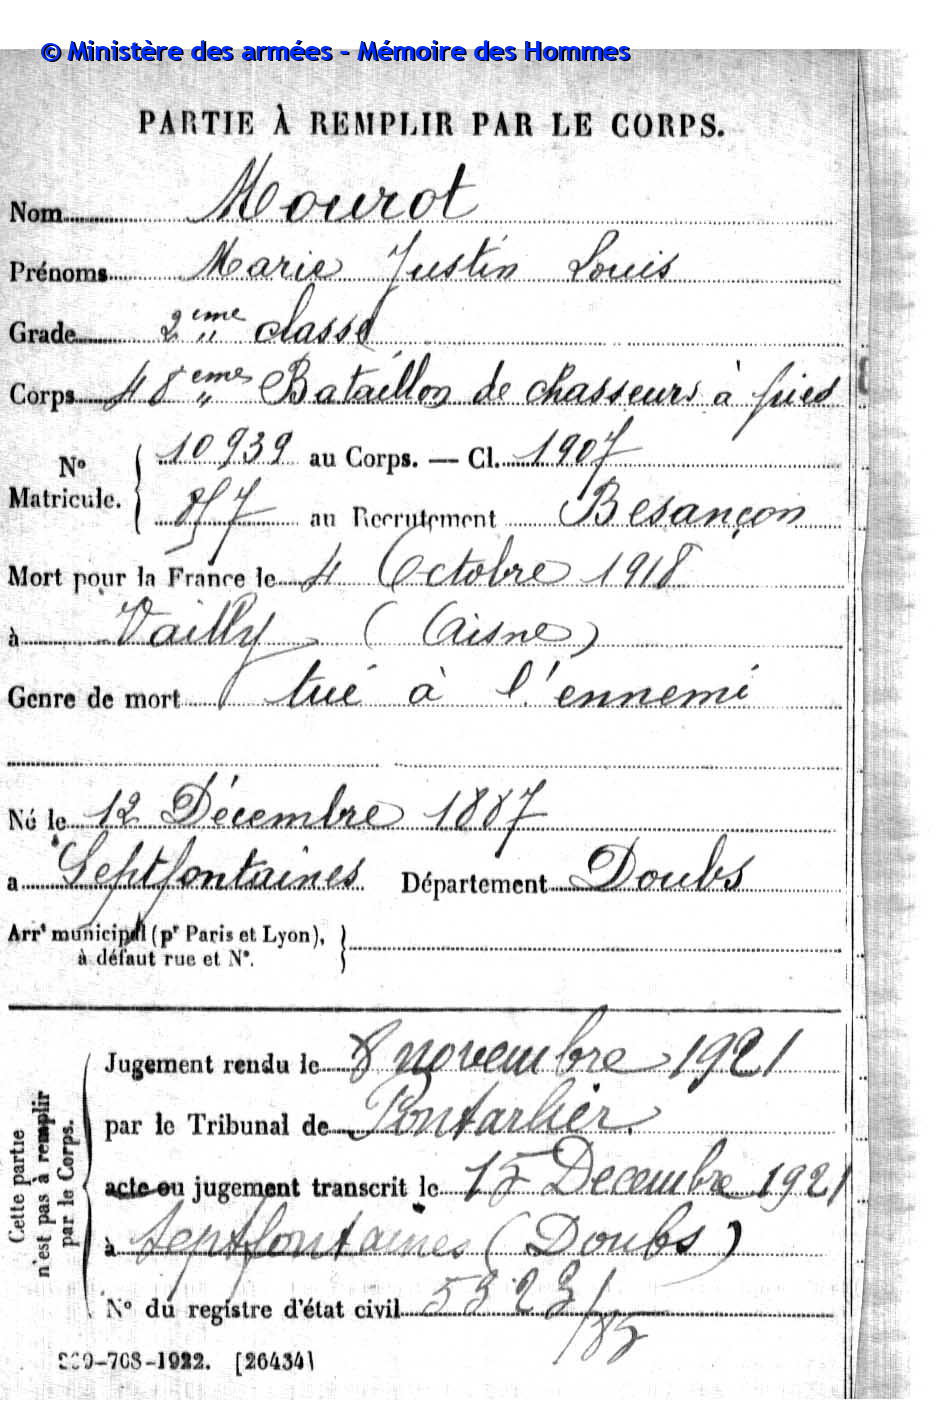 © Ministère des armées - Mémoire des Hommes
PARTIE À REMPLIR PAR LE CORPS.
Nom Mourot
Prénoms Marie Justin Louis
Grade 2ème classe
Corps 48ème Bataillon de chasseurs à pied
N° Matricule. 10939 au Corps. — Cl. 1907
857 au Recrutement Besançon
Mort pour la France le 4 Octobre 1918
à Vailly (Aisne)
Genre de mort tué à l'ennemi
Né le 12 Décembre 1887
a Septfontaines Département Doubs
Arrt municipal (pr Paris et Lyon),
à défaut rue et N°.
Cette partie
n'est pas à remplir
par le Corps.
Jugement rendu le 8 novembre 1921
par le Tribunal de Pontarlier.
acte ou jugement transcrit le 15 Decembre 1921
à Septfontaines (Doubs)
N° du registre d'état civil 5323/
185
-708-1922. [26434]